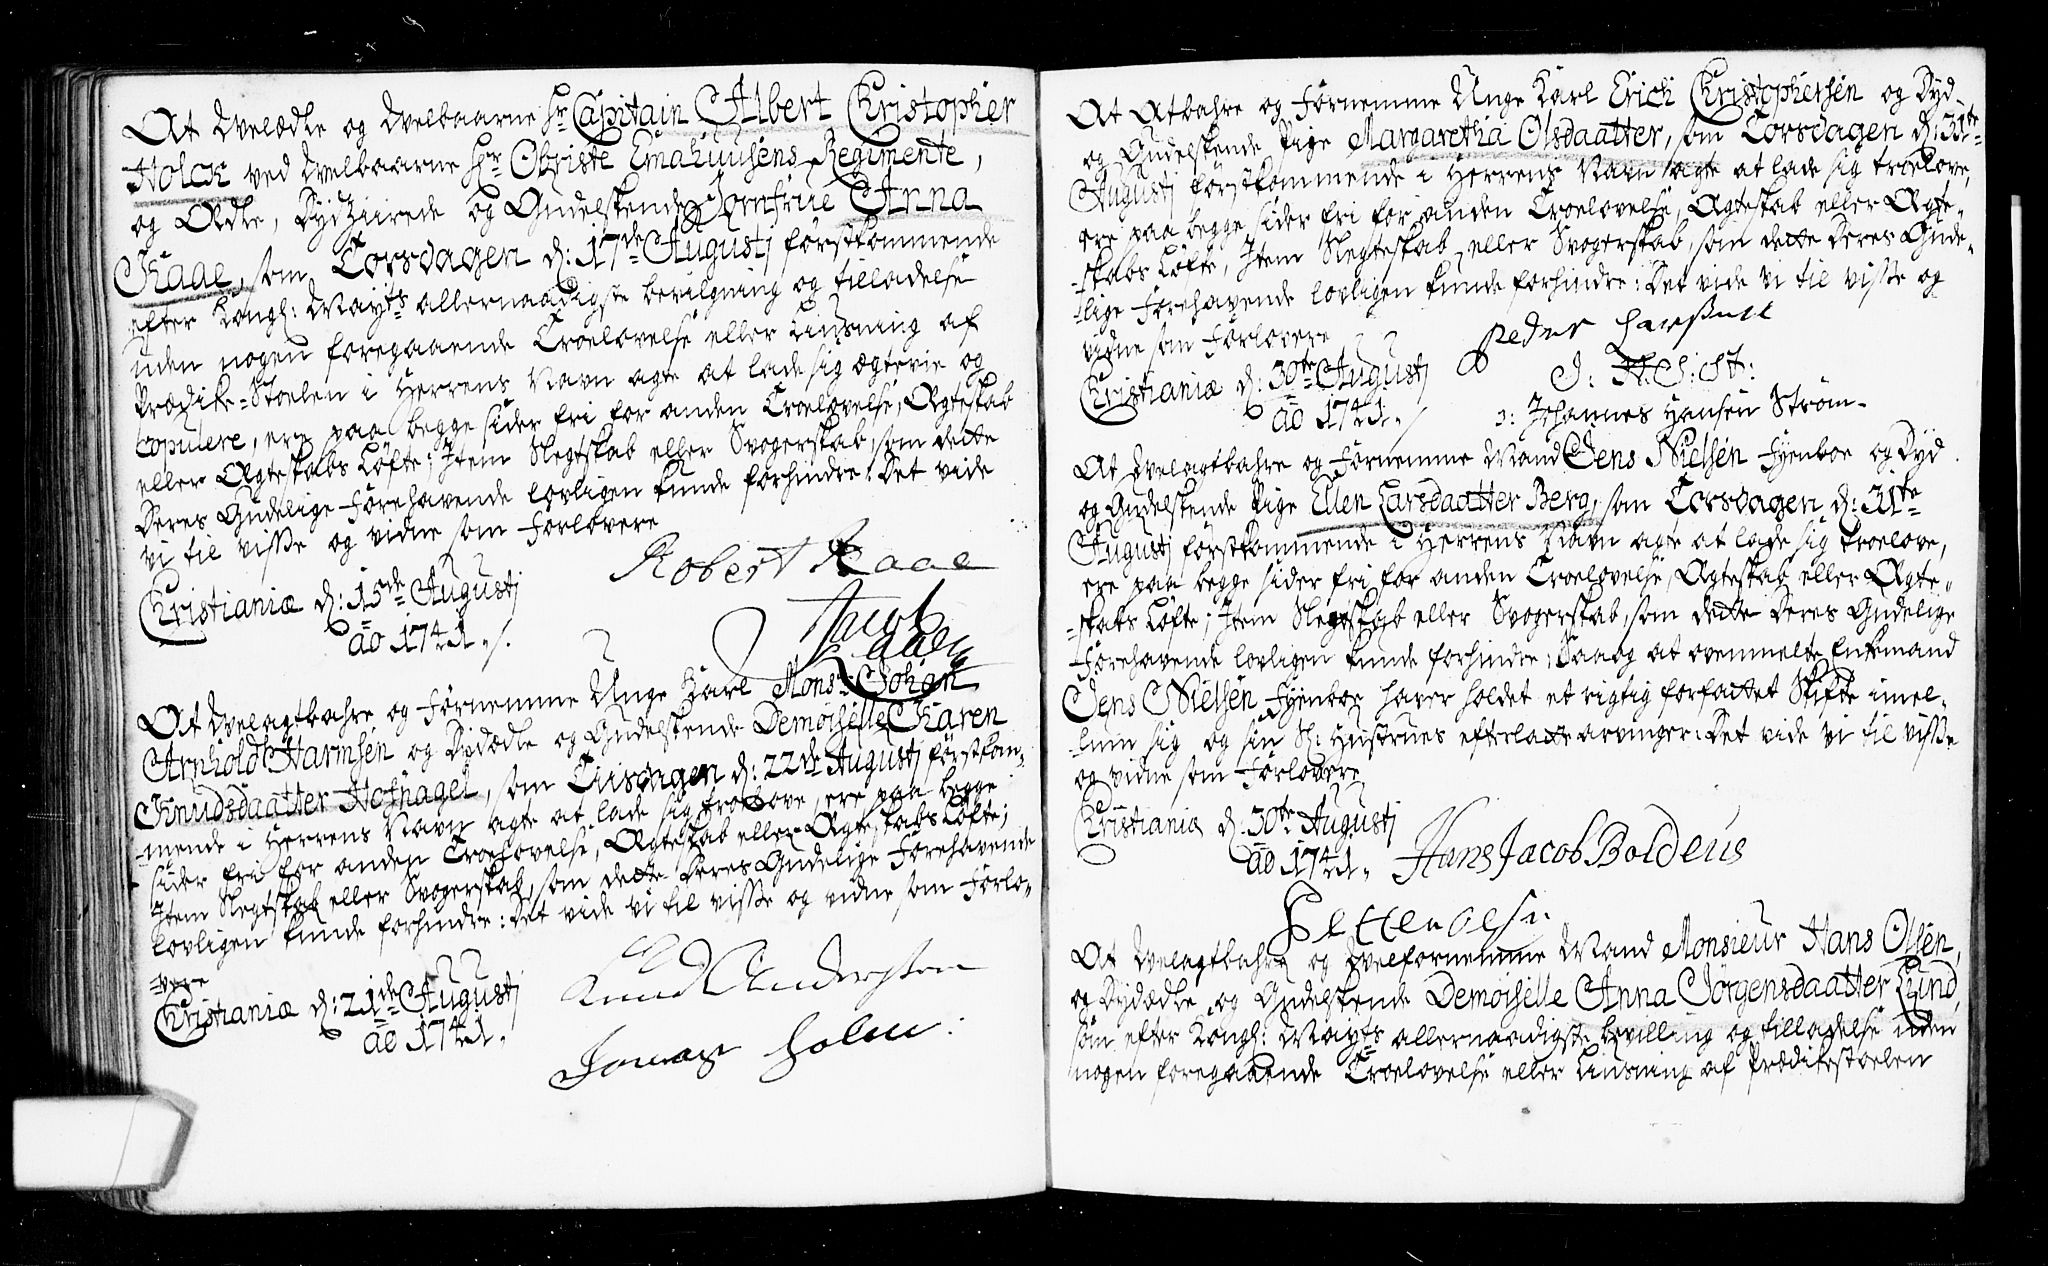 At Velædle og Velbaarne Hr Capitain Albert Christopher
Holck ved Velbaarne Hr Obriste Emahuusens Regimente,
og Ædle, Dydziirede og Gudelskende Jomfrue Anna
Kaae, som Torsdagen d: 17de Augustj førstkommende
efter Kongl: Mayts allernaadigste bevilgning og tilladelse
uden nogen foregaaende Troelovelse eller Liusning af
Prædike-Stoelen i Herrens Navn agte at lade sig ægtevie og
copulere, ere paa begge sider fri for anden Troelovelse, Ægteskab
eller Ægteskabs Løfte; Item Slegtskab eller Svogerskab, som dette
Deres Gudelige Forehavende lovligen kunde forhindre: Det vide
vi til visse og vidne som Forlovere
Christiania d: 15de Augustj
ao 1741.
Robert Kaae
Jacob
Kaae
At Velagtbahre og Fornemme Unge Karl Monsr: Johan
Arnhold Harmsen og Dydædle og Gudelskende Demoiselle Karen
Knudsdaatter Hofnagel, som Tiisdagen d: 22de Augustj førstkom-
-mende i Herrens Navn agte at lade sig troelove, ere paa begge
sider fri for anden Troelovelse, Ægteskab eller Ægteskabs Løfte;
Item Slegtskab eller Svogerskab, som dette Deres Gudelige Forehavende
lovligen kunde forhindre: Det vide vi til visse og vidne som Forlo-
-vere
Christiania d: 21de Augustj
ao 1741.
Knud Andersten
Holm.
At Atbahre og Fornemme Unge Karl Erich Christophersen og Dyd-
og Gudelskende Pige Margaretha Olsdaatter, som Torsdagen d: 31te
Augustj førstkommende i Herrens Navn agte at lade sig troelove,
ere paa begge sider fri for anden Troelovelse, Ægteskab eller Ægte-
-skabs Løfte, Item Slegteskab eller Svogerskab, som dette Deres Gude-
-lige Forehavende lovligen kunde forhindre: Det vide vi til visse og
vidne som Forlovere
Christiania d: 30te Augustj
ao 1741.
Peder
Johannes Hansen Strøm.
At Velagtbahre og Fornemme Mand Jens Nielsen Fyenboe og Dyd
og Gudelskende Pige Ellen Larsdaatter Berg, som Torsdagen d: 31te
Augustj førstkommende i Herrens Navn agte at lade sig troelove,
ere paa begge sider fri for anden Troelovelse, Ægteskab eller Ægte-
-skabs Løfte; Item Slegtskab eller Svogerskab, som dette Deres Gudelige
Forehavende lovligen kunde forhindre; Saa og at ovenmelte Enkemand
Jens Nielsen Fyenboe haver holdet et rigtig forfattet Skifte imel-
-lum sig og sin Sl: Hustrues efterlatte arvinger: Det vide vi til visse
og vidne som Forlovere
Christiania d: 30te Augustj
ao 1741.
Hans Jacob Boldeus
Petter Olsn.
At Velagtbahre og Velfornemme Mand Monsieur Hans Olsen,
og Dydædle og Gudelskende Demoiselle Anna Jörgensdaatter Lund,
som efter Kongl: Mayts allernaadigste bevilling og tilladelse uden
nogen foregaaende Troelovelse eller Liusning af Prædikestoelen